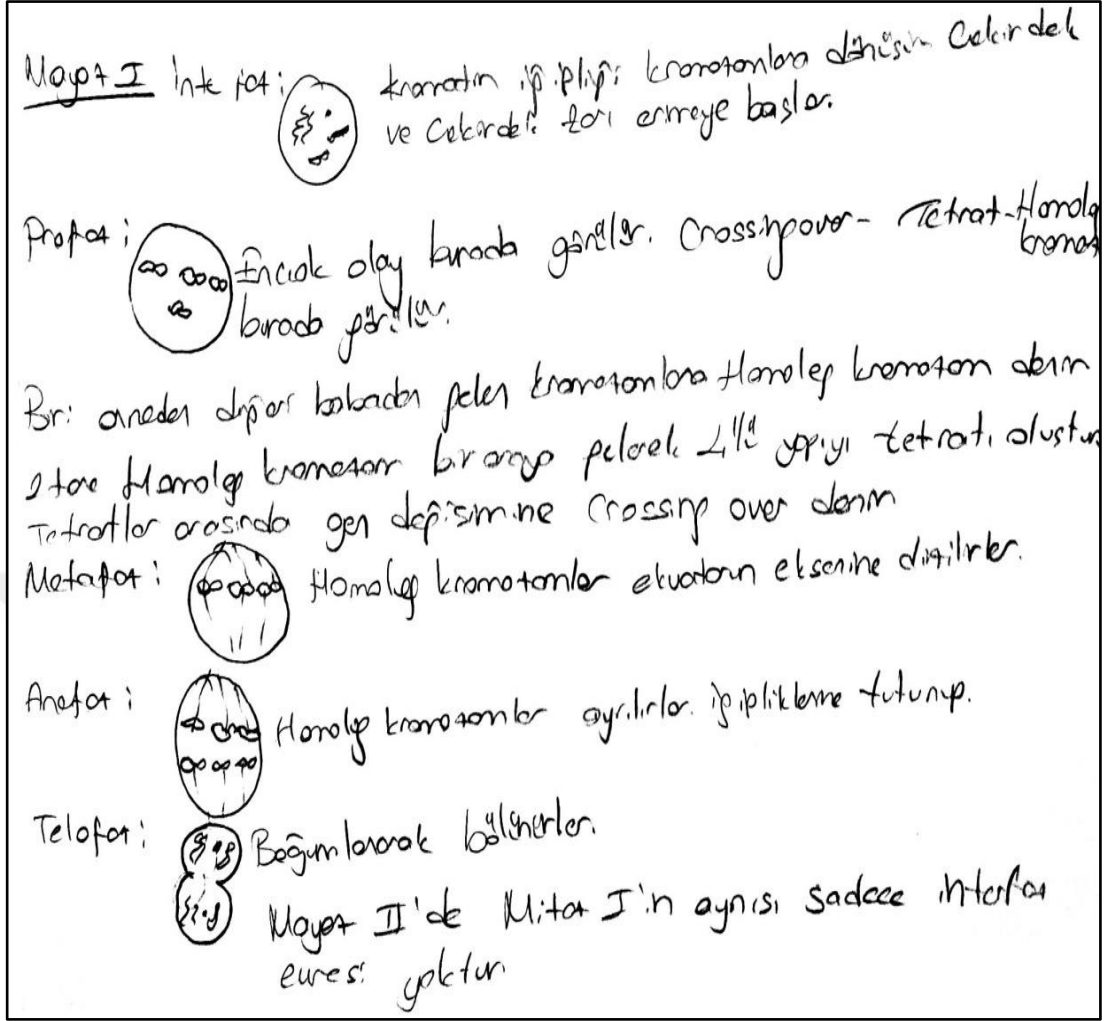 Mayoz I İnterfaz; kromatin iğ ipliği kromozomlara dönüşür Çekirdek
ve Çekirdek zarı erimeye başlar.
Profaz; En çok olay burada görülür. Crossingover - Tetrat - Homolog
kromoz
burada görülür.
Bir: anneden diğeri babadan gelen kromozomlara Homolog kromozom denir
2 tane Homolog kromozom bir araya gelerek 4'lü yapıyı tetratı oluşturur
Tetratlar arasında gen değişimine Crossing over denir
Metafaz: Homolog kromozomlar ekvatorun eksenine dizilirler.
Anafaz; Homolog kromozomlar ayrılırlar. iğ ipliklerine tutunup.
Telofaz; Boğumlanarak bölünürler.
Mayoz II'de Mitoz I'in aynısı sadece interfaz
evresi yoktur.